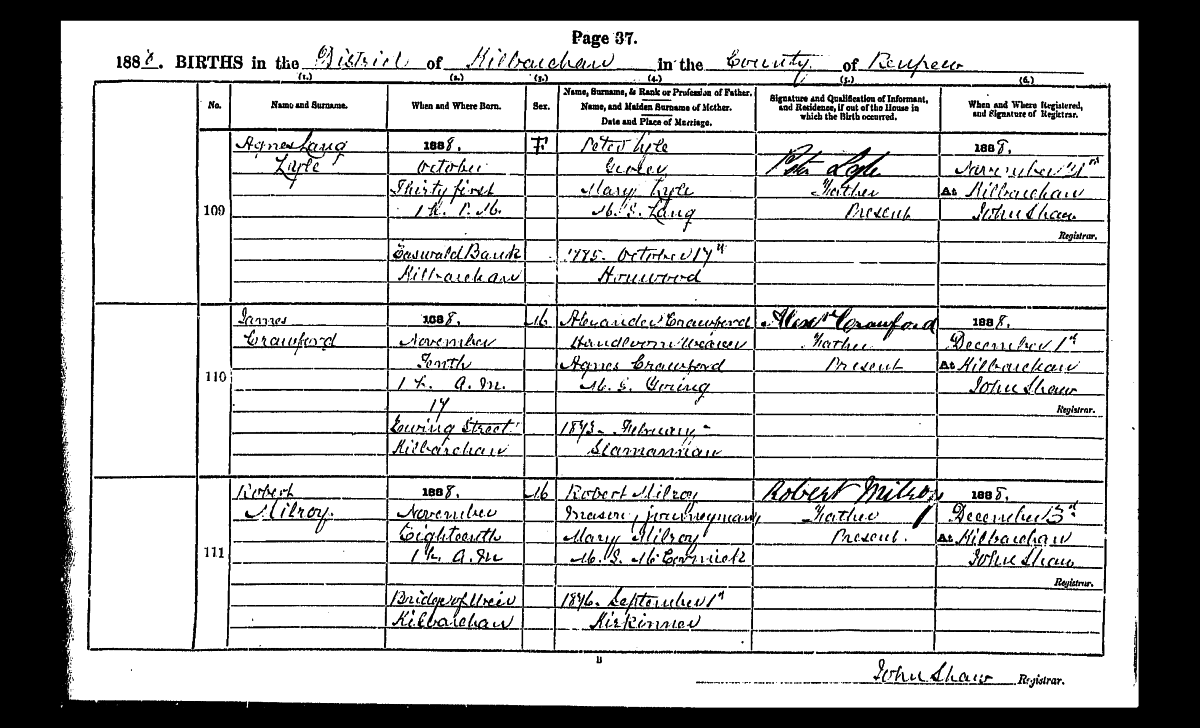 Page 37.
1888. BIRTHS in the District of Kilbarchan in the County of Renfrew
(1.) (2.) (3.) (4.) (5.) (6.)
No. Name and Surname. When and Where Born. Sex. Name, Surname, & Rank or Profession of Father. Name, and Maiden Surname of Mother. Date and Place of Marriage. Signature and Qualification of Informant, and Residence, if out of the House in which the Birth occurred. When and Where Registered, and Signature of Registrar.
Agnes Lang 1888. F. Peter Lyle 1888.
Lyle October Grocer Peter Lyle November
Thirty first Mary Lyle Father At Kilbarchan
109 1 h. P.M. M.S. Lang Present John Shaw
Registrar.
Bank October 17th
Kilbarchan Howwood
James 1888. M. Alexander Crawford Alexr Crawford 1888.
Crawford November Handloom Weaver Father December 1st
Tenth Agnes Crawford Present At Kilbarchan
110 1 h. A.M. M.S. John Shaw
17 Registrar.
Ewing Street 1873. February
Kilbarchan Slamannan
Robert 1888. M. Robert Milroy Robert Milroy 1888.
Milroy. November Mason, journeyman Father December 3rd
Eighteenth Mary Milroy Present. At Kilbarchan
111 1 h. A.M. M.S. McCornick John Shaw
Registrar.
Bridge of Weir 1876. September 1st
Kilbarchan Kirkinner
B
John Shaw Registrar.